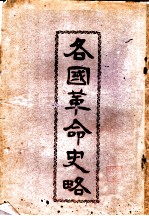 各國革命史略